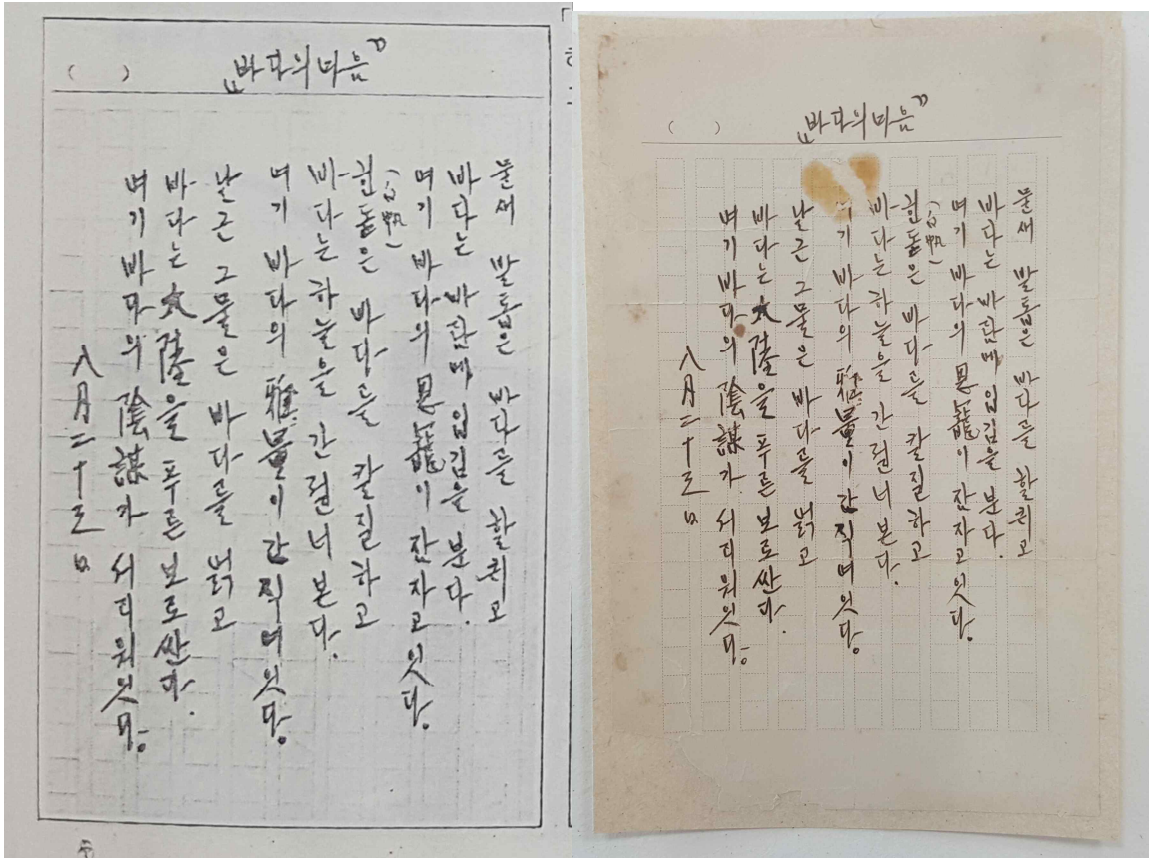 『바다의마음』
물새 발톱은 바다를 할퀴고
바다는 바람에 입김을 분다.
여기 바다의 恩寵이 잠자고잇다。
힌돛은 바다를 칼질하고
(白帆)
바다는하늘을 간질너본다.
여기 바다의 雅量이간직여잇다。
날근 그물은 바다를 얽고
바다는大陸을 푸른 보로싼다.
여기 바다의 陰謀가 서리워잇다。
八月二十三日
『바다의마음』
물새 발톱은 바다를 할퀴고
바다는 바람에 입김을 분다.
여기 바다의 恩寵이 잠자고잇다。
힌돛은 바다를 칼질하고
(白帆)
바다는하늘을 간질너본다.
여기 바다의 雅量이간직여잇다。
날근 그물은 바다를 얽고
바다는大陸을 푸른 보로싼다.
여기 바다의 陰謀가 서리워잇다。
八月二十三日